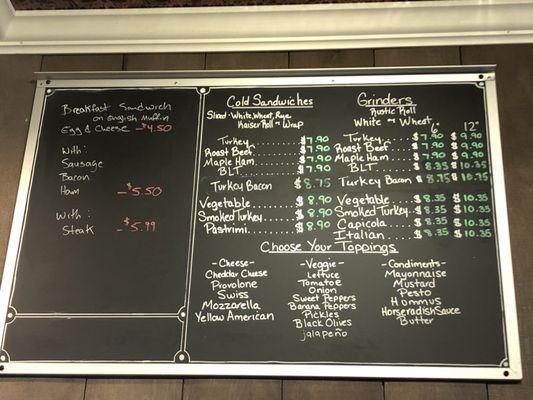 Breakfast Sandwich
on English Muffin
Egg & Cheese - $4.50
With:
Sausage
Bacon
Ham - $5.50
With:
Steak - $5.99
Cold Sandwiches
Sliced White, Wheat, Rye
Kaiser Roll or Wrap
Turkey........ $7.90
Roast Beef....... $7.90
Maple Ham........ $7.90
BLT........ $7.90
Turkey Bacon $8.75
Vegetable........ $8.90
Smoked Turkey..... $8.90
Pastrimi........ $8.90
Grinders
Rustic Roll
White or Wheat
6" 12"
Turkey........ $7.90 $9.90
Roast Beef..... $7.90 $9.90
Maple Ham..... $7.90 $9.90
BLT........ $8.35 $10.35
Turkey Bacon $8.75 $10.75
Vegetable..... $8.35 $10.35
Smoked Turkey. $8.35 $10.35
Capicola...... $8.35 $10.35
Italian....... $8.35 $10.35
Choose Your Toppings
- Cheese -
Cheddar Cheese
Provolone
Swiss
Mozzarella
Yellow American
- Veggie -
Lettuce
Tomatoe
Onion
Sweet Peppers
Banana Peppers
Pickles
Black Olives
jalapeño
- Condiments -
Mayonnaise
Mustard
Pesto
Hummus
Horseradish Sauce
Butter